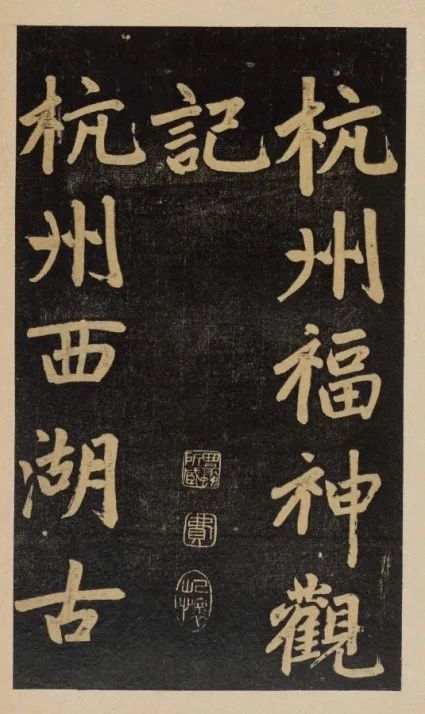 杭州福神觀
記
杭州西湖古